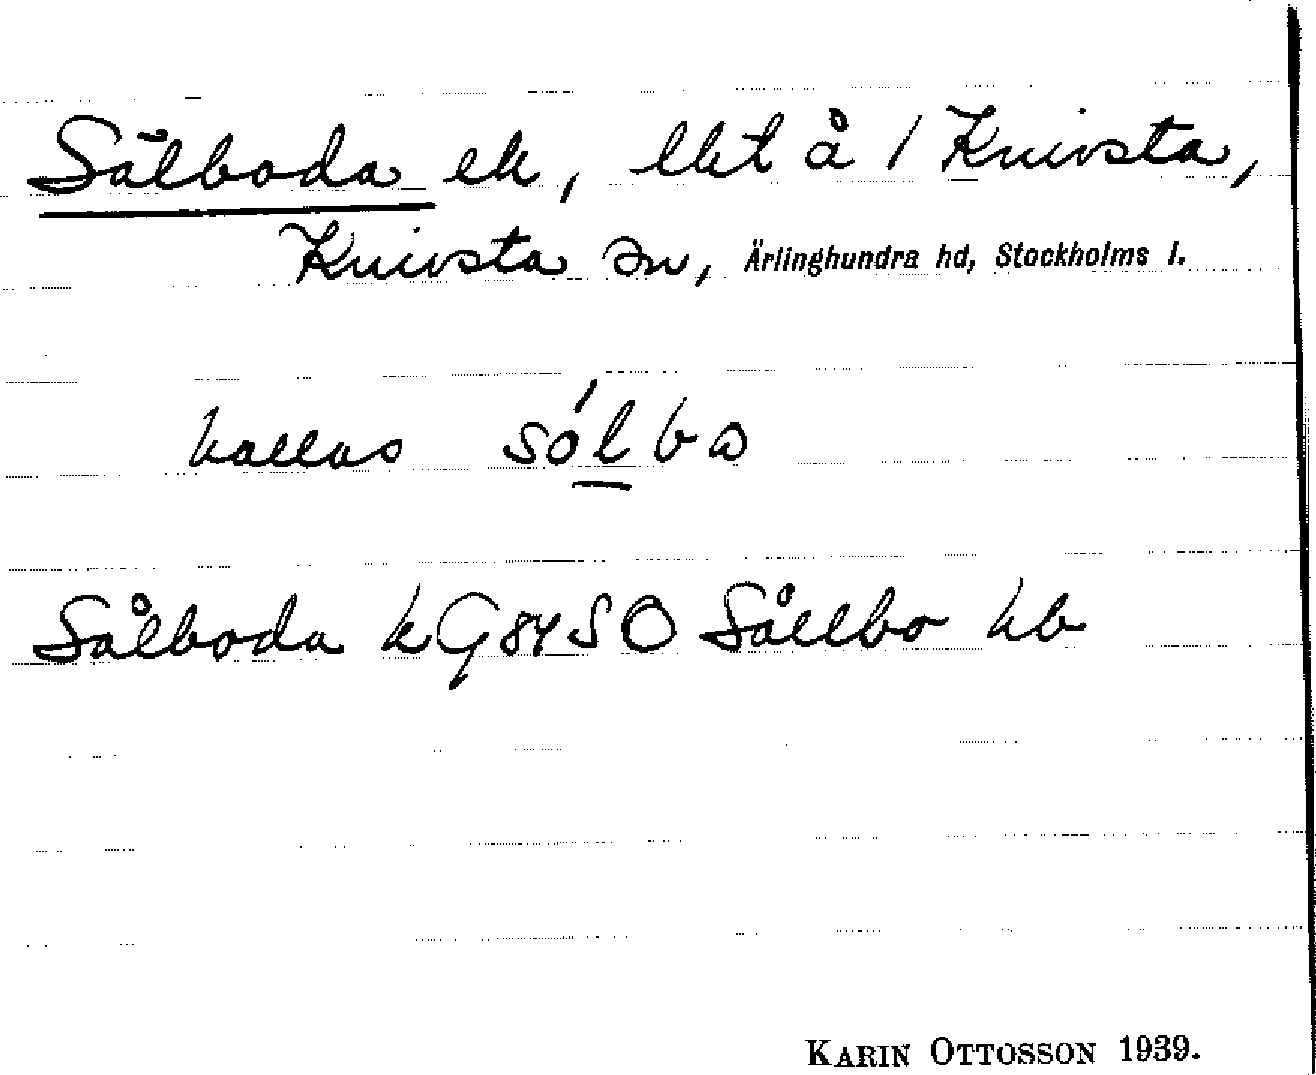 Sålboda ek, lht å 1 Knivsta,
Knivsta sn, Ärlinghundra hd, Stockholms l.
kallas sólba
Sålboda kG 84 SO Sållbo hb
KARIN OTTOSSON 1939.